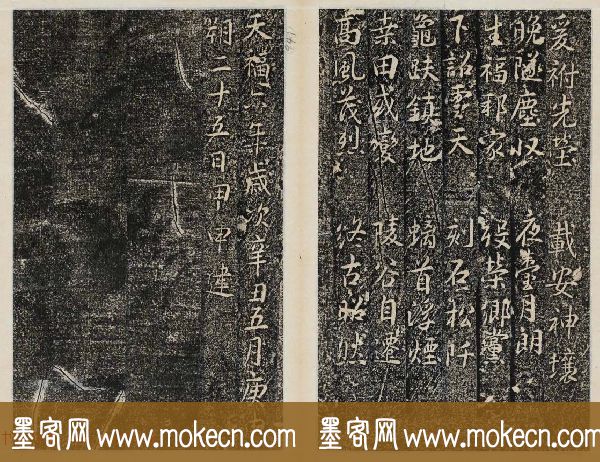 爰祔先塋 載安神壤
晚隧塵收 夜臺月朗
生福邦家 歿榮鄉黨
下詔雲天 刻石松阡
龜趺鎮地 螭首浮煙
桑田或變 陵谷自遷
高風茂烈 終古昭然
天福六年歲次辛丑五月庚
朔二十五日甲申建
墨客网 www.mokecn.com
墨客网 www.mokecn.com